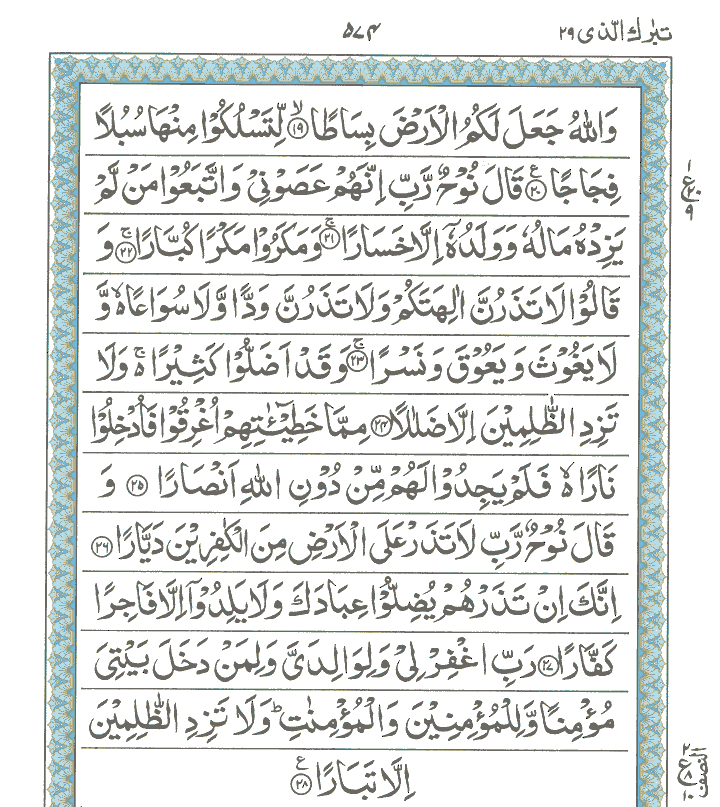 تبٰرك الّذی ۲۹
۵۷۴
وَاللّٰهُ جَعَلَ لَكُمُ الْاَرْضَ بِسَاطًا ۙ﴿۱۹﴾ لِّتَسْلُكُوْا مِنْهَا سُبُلًا
فِجَاجًا ۧ﴿۲۰﴾ قَالَ نُوْحٌ رَّبِّ اِنَّهُمْ عَصَوْنِیْ وَاتَّبَعُوْا مَنْ لَّمْ
یَزِدْهُ مَالُهٗ وَوَلَدُهٗۤ اِلَّا خَسَارًا ۚ﴿۲۱﴾ وَمَكَرُوْا مَكْرًا كُبَّارًا ۚ﴿۲۲﴾ وَ
قَالُوْا لَا تَذَرُنَّ اٰلِهَتَكُمْ وَلَا تَذَرُنَّ وَدًّا وَّلَا سُوَاعًا ۙ۬ وَّ
لَا یَغُوْثَ وَیَعُوْقَ وَنَسْرًا ۚ﴿۲۳﴾ وَقَدْ اَضَلُّوْا كَثِیْرًا ۚ۬ وَلَا
تَزِدِ الظّٰلِمِیْنَ اِلَّا ضَلٰلًا ﴿۲۴﴾ مِمَّا خَطِیْٓـٰٔتِهِمْ اُغْرِقُوْا فَاُدْخِلُوْا
نَارًا ۙ۬ فَلَمْ یَجِدُوْا لَهُمْ مِّنْ دُوْنِ اللّٰهِ اَنْصَارًا ﴿۲۵﴾ وَ
قَالَ نُوْحٌ رَّبِّ لَا تَذَرْ عَلَی الْاَرْضِ مِنَ الْكٰفِرِیْنَ دَیَّارًا ﴿۲۶﴾
اِنَّكَ اِنْ تَذَرْهُمْ یُضِلُّوْا عِبَادَكَ وَلَا یَلِدُوْۤا اِلَّا فَاجِرًا
كَفَّارًا ﴿۲۷﴾ رَبِّ اغْفِرْ لِیْ وَلِوَالِدَیَّ وَلِمَنْ دَخَلَ بَیْتِیَ
مُؤْمِنًا وَّلِلْمُؤْمِنِیْنَ وَالْمُؤْمِنٰتِ ؕ وَلَا تَزِدِ الظّٰلِمِیْنَ
اِلَّا تَبَارًا ۧ﴿۲۸﴾
۱
ع
۲۰
۹
النصف
۲
ع
۸
۱۰